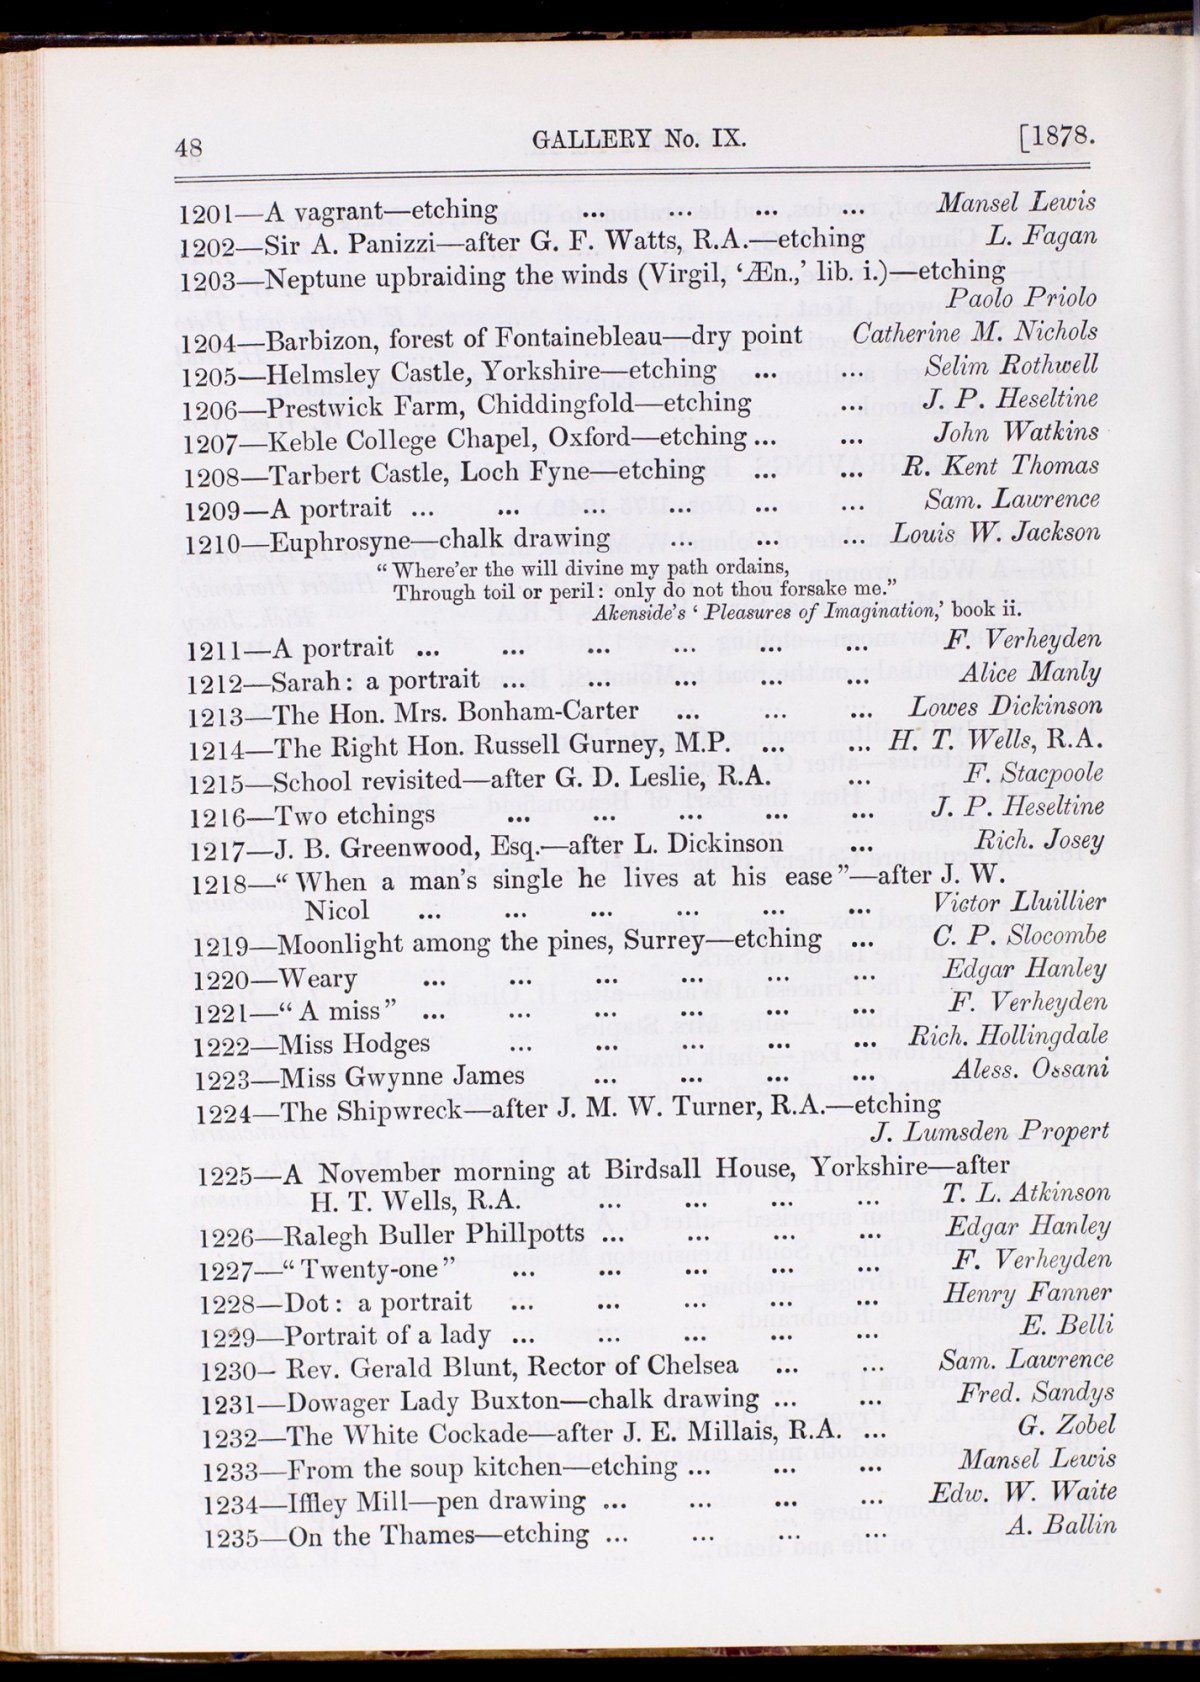 48 GALLERY No. IX. [1878.
1201—A vagrant—etching ... ... ... ... Mansel Lewis
1202—Sir A. Panizzi—after G. F. Watts, R.A.—etching L. Fagan
1203—Neptune upbraiding the winds (Virgil, ‘Æn.,’ lib. i.)—etching
Paolo Priolo
1204—Barbizon, forest of Fontainebleau—dry point Catherine M. Nichols
1205—Helmsley Castle, Yorkshire—etching ... ... Selim Rothwell
1206—Prestwick Farm, Chiddingfold—etching ... J. P. Heseltine
1207—Keble College Chapel, Oxford—etching ... ... John Watkins
1208—Tarbert Castle, Loch Fyne—etching ... ... R. Kent Thomas
1209—A portrait ... ... ... ... ... ... Sam. Lawrence
1210—Euphrosyne—chalk drawing ... ... ... Louis W. Jackson
“ Where'er the will divine my path ordains,
Through toil or peril: only do not thou forsake me.”
Akenside's ‘ Pleasures of Imagination,’ book ii.
1211—A portrait ... ... ... ... ... ... F. Verheyden
1212—Sarah: a portrait ... ... ... ... ... Alice Manly
1213—The Hon. Mrs. Bonham-Carter ... ... ... Lowes Dickinson
1214—The Right Hon. Russell Gurney, M.P. ... ... H. T. Wells, R.A.
1215—School revisited—after G. D. Leslie, R.A. ... F. Stacpoole
1216—Two etchings ... ... ... ... ... J. P. Heseltine
1217—J. B. Greenwood, Esq.—after L. Dickinson ... Rich. Josey
1218—“ When a man's single he lives at his ease”—after J. W.
Nicol ... ... ... ... ... ... Victor Lluillier
1219—Moonlight among the pines, Surrey—etching ... C. P. Slocombe
1220—Weary ... ... ... ... ... ... Edgar Hanley
1221—“ A miss” ... ... ... ... ... ... F. Verheyden
1222—Miss Hodges ... ... ... ... ... Rich. Hollingdale
1223—Miss Gwynne James ... ... ... ... Aless. Ossani
1224—The Shipwreck—after J. M. W. Turner, R.A.—etching
J. Lumsden Propert
1225—A November morning at Birdsall House, Yorkshire—after
H. T. Wells, R.A. ... ... ... ... T. L. Atkinson
1226—Ralegh Buller Phillpotts ... ... ... ... Edgar Hanley
1227—“ Twenty-one” ... ... ... ... ... F. Verheyden
1228—Dot: a portrait ... ... ... ... ... Henry Fanner
1229—Portrait of a lady ... ... ... ... E. Belli
1230— Rev. Gerald Blunt, Rector of Chelsea ... ... Sam. Lawrence
1231—Dowager Lady Buxton—chalk drawing ... ... Fred. Sandys
1232—The White Cockade—after J. E. Millais, R.A. ... G. Zobel
1233—From the soup kitchen—etching ... ... ... Mansel Lewis
1234—Iffley Mill—pen drawing ... ... ... ... Edw. W. Waite
1235—On the Thames—etching ... ... ... ... A. Ballin